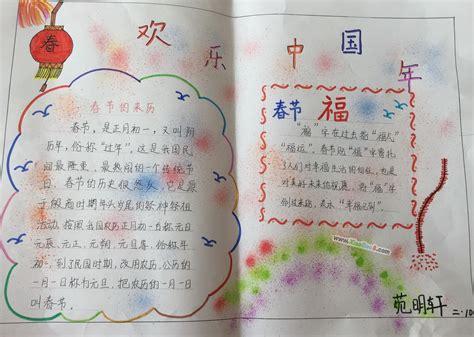 春
欢乐中国年
春节的来历
春节，是正月初一，又叫阴
历年，俗称“过年”，这是我国民
间最隆重、最热闹的一个传统节
日。春节的历史很悠久，它是源
于殷商时期年岁尾的祭神祭祖
活动。按照我国农历正月初一古称元日
元辰、元正、元朔、元旦等，俗称年
初一，到了民国时期，改用农历，公历的
一月一日称为元旦，把农历的一月一日
叫春节。
春节 福
“福”字在过去指“福气”
“福运”，春节贴“福”字寄托
了人们对幸福生活的向往，也是
对美好未来的祝愿。将“福”字
倒过来贴，表示“幸福已到”。
苑明轩
二·10